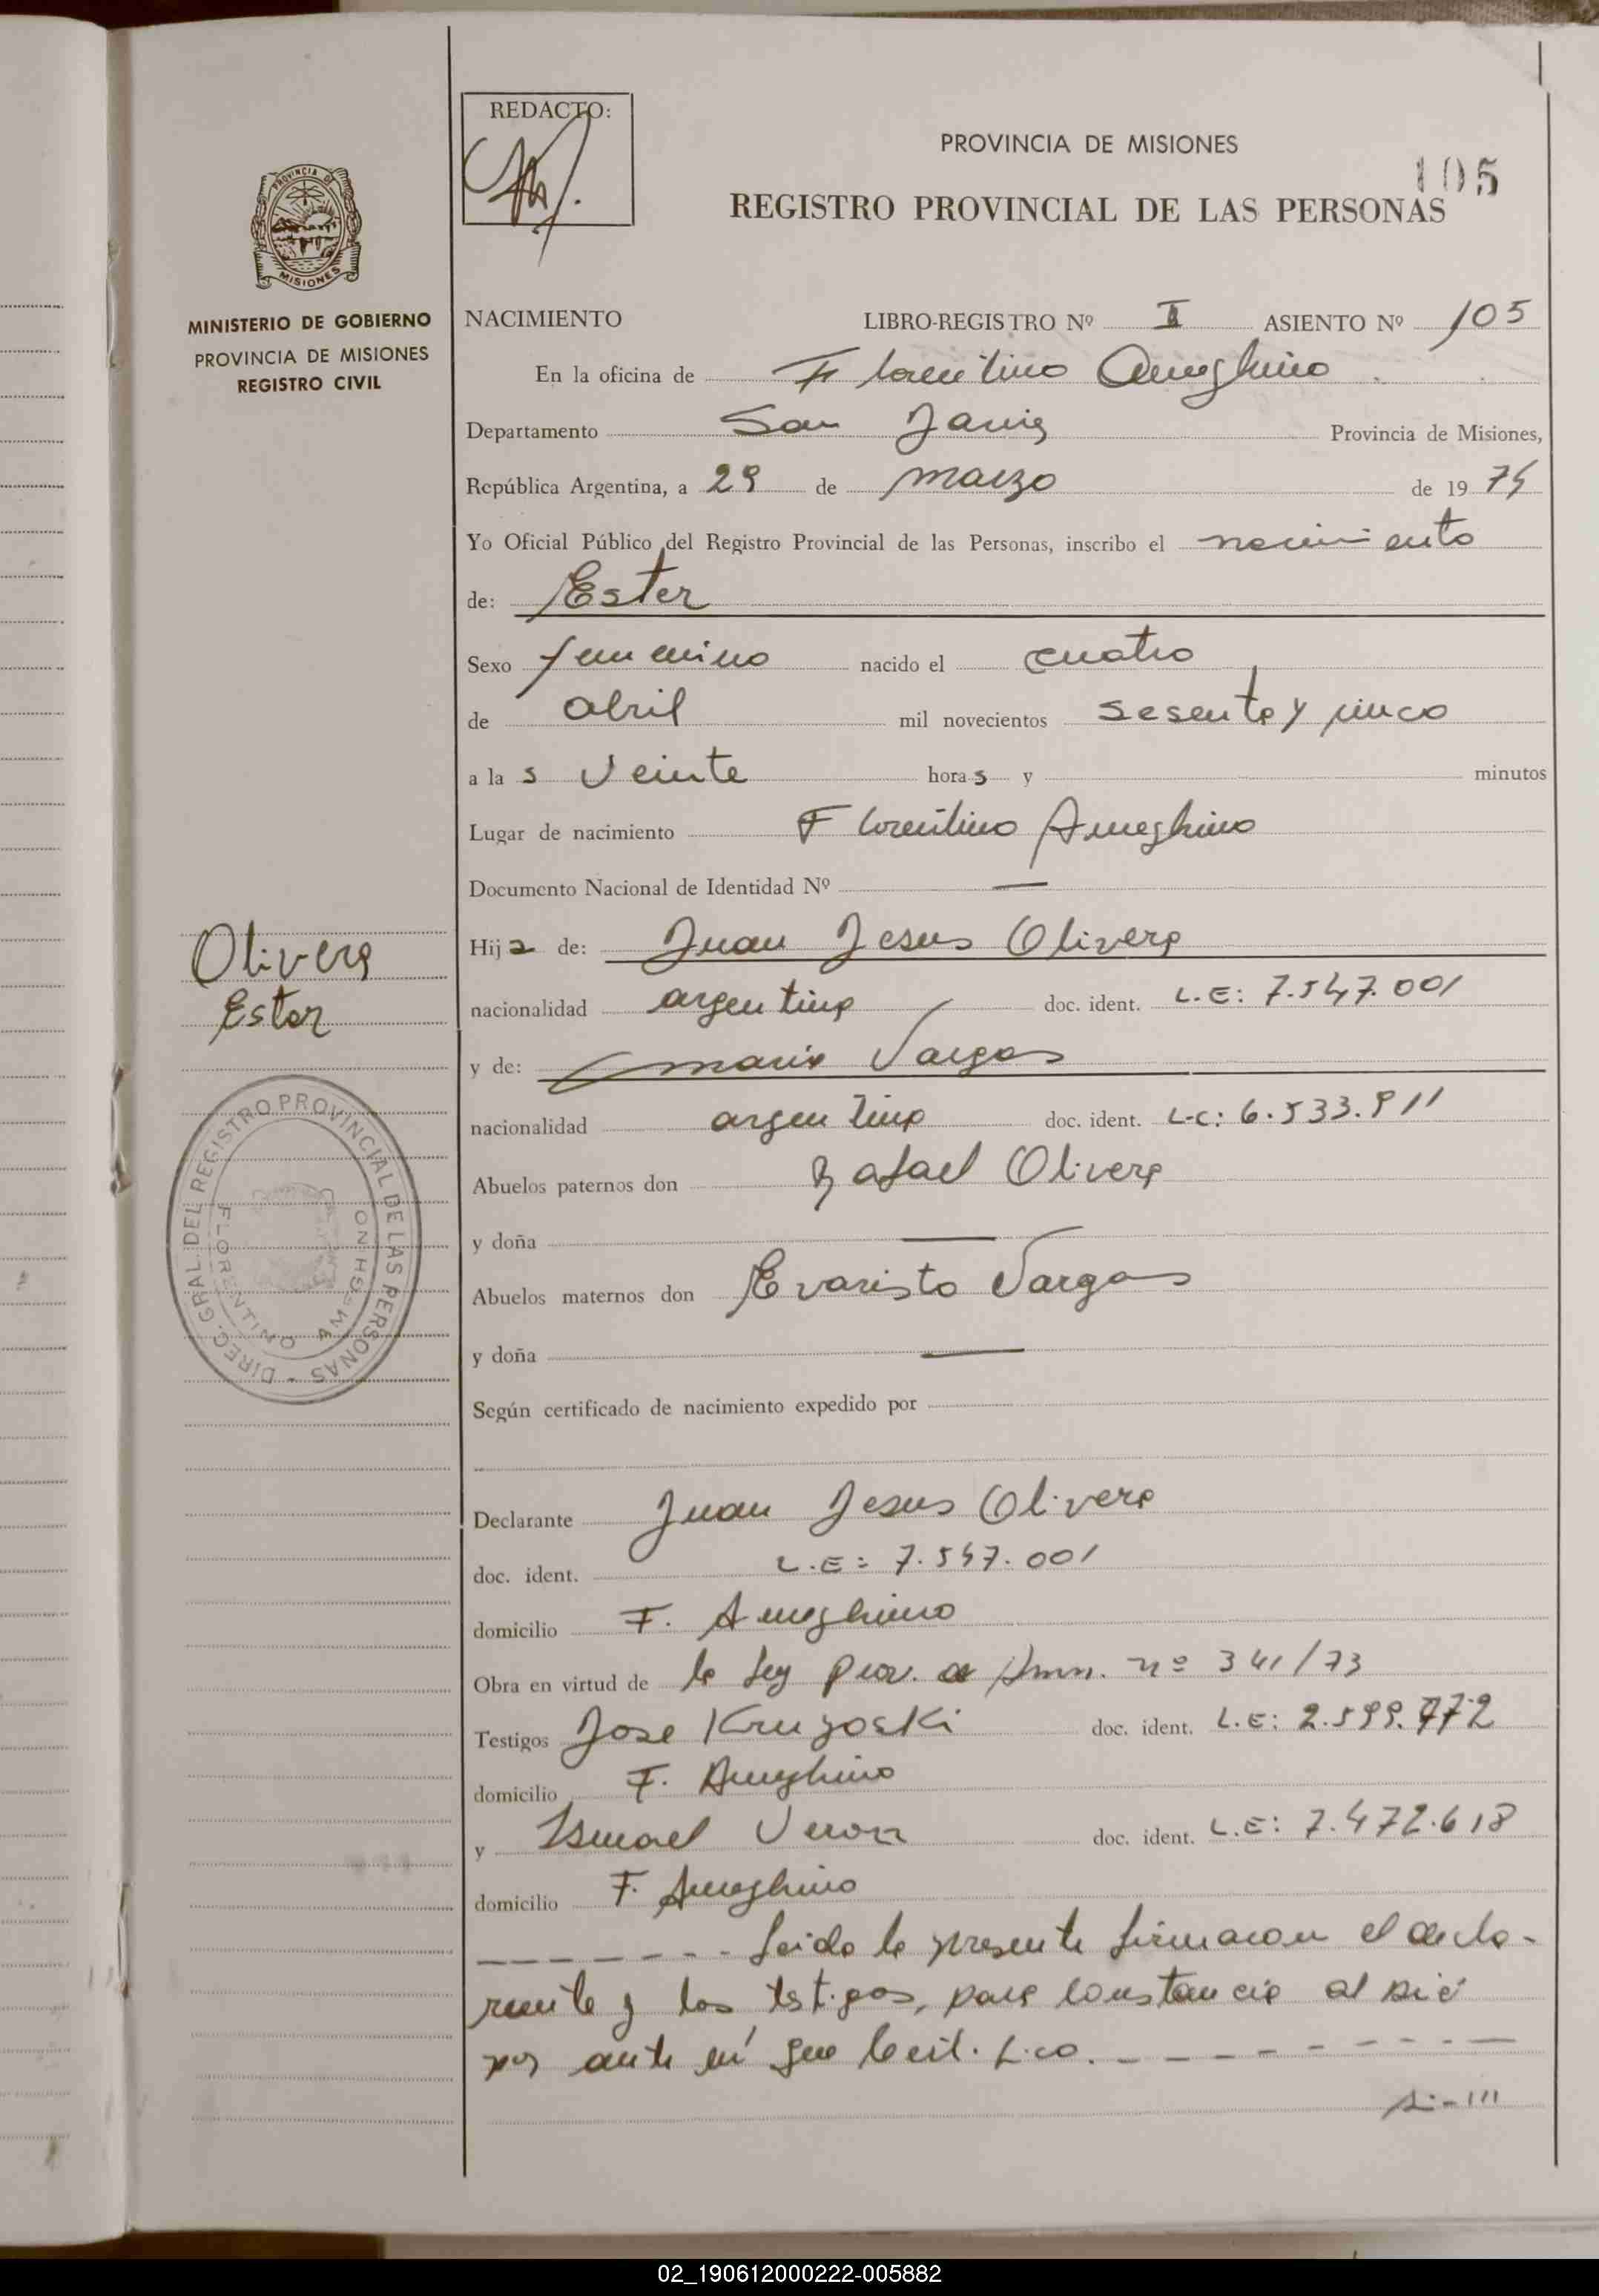 REDACTO:
PROVINCIA DE MISIONES
105
REGISTRO PROVINCIAL DE LAS PERSONAS
PROVINCIA DE
MISIONES
MINISTERIO DE GOBIERNO
PROVINCIA DE MISIONES
REGISTRO CIVIL
NACIMIENTO LIBRO-REGISTRO Nº II ASIENTO Nº 105
En la oficina de Florentino Ameghino
Departamento San Javier Provincia de Misiones,
República Argentina, a 29 de marzo de 19 74
Yo Oficial Público del Registro Provincial de las Personas, inscribo el nacimiento
de: Ester
Sexo femenino nacido el cuatro
de abril mil novecientos sesenta y cinco
a la s Veinte hora s y minutos
Lugar de nacimiento Florentino Ameghino
Documento Nacional de Identidad Nº —
Hij a de: Juan Jesus Olivera
nacionalidad argentina doc. ident. L.E: 7.547.001
y de: Maria Vargas
nacionalidad argentina doc. ident. L.C: 6.533.911
Abuelos paternos don Rafael Olivera
y doña —
Abuelos maternos don Evaristo Vargas
y doña —
Según certificado de nacimiento expedido por
Declarante Juan Jesus Olivera
doc. ident. L.E: 7.547.001
domicilio F. Ameghino
Obra en virtud de la Ley prov. de Amn. nº 341/73
Testigos Jose Kruzoski doc. ident. L.E: 2.599.772
domicilio F. Ameghino
y Ismael Veron doc. ident. L.E: 7.472.618
domicilio F. Ameghino
- - - - - - - Leida la presente firmaron el decla-
rante y los testigos, para constancia al pié
por ante mí que
Olivera
Ester
DIREC. GRAL. DEL REGISTRO PROVINCIAL DE LAS PERSONAS
FLORENTINO AMEGHINO
02_190612000222-005882